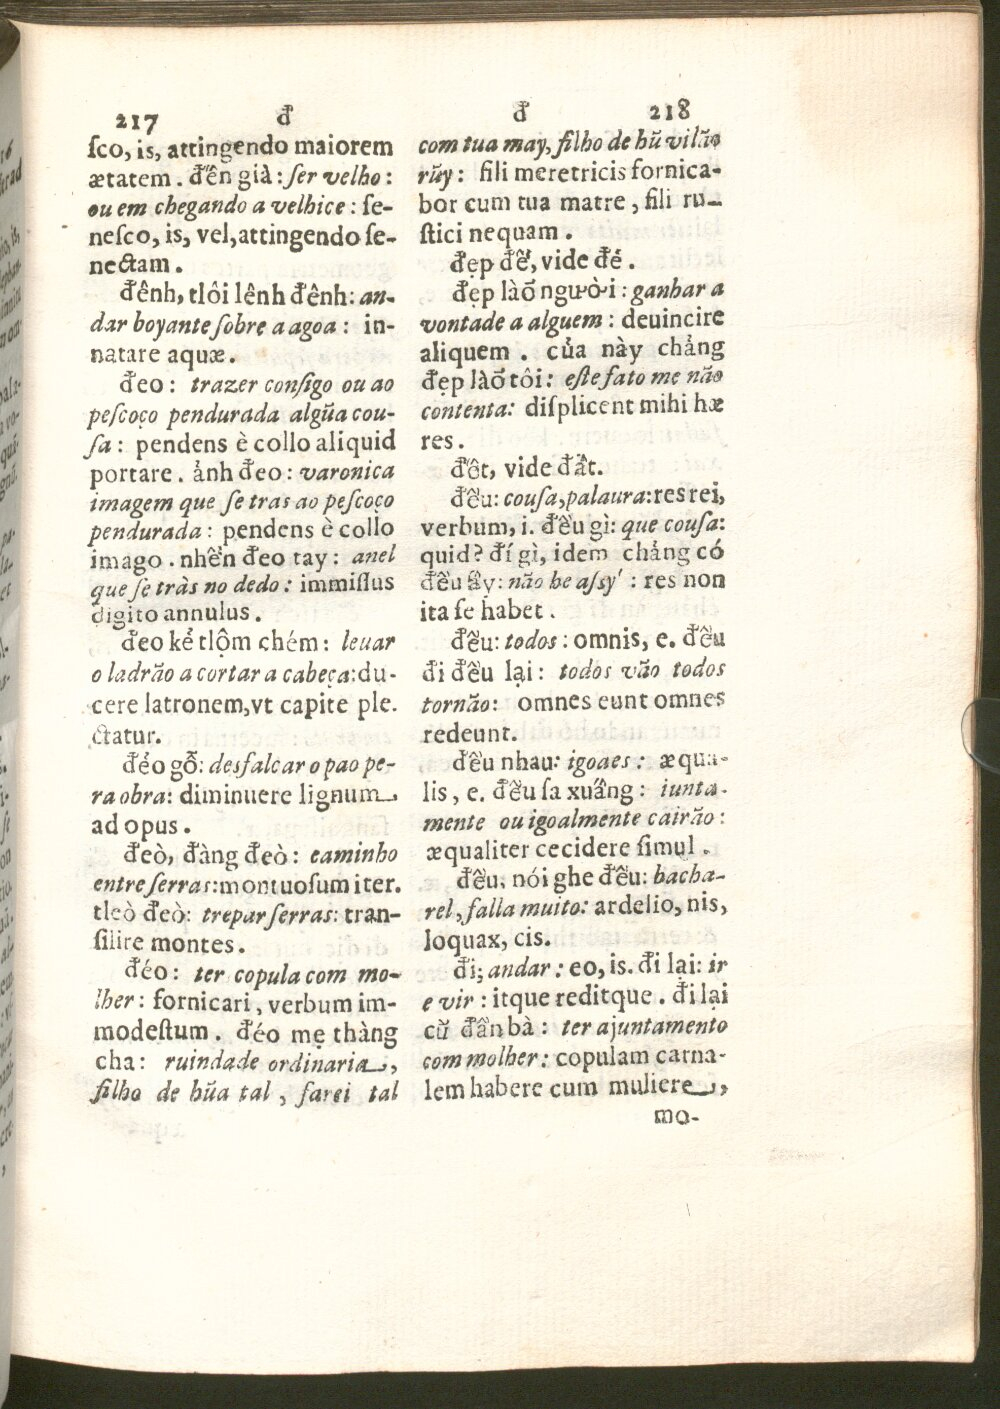 217 đ
ſco, is, attingendo maiorem
ætatem. đến già: ſer velho:
ou em chegando a velhice: ſe-
neſco, is, vel, attingendo ſe-
nectam.
đênh, tlôi lênh đênh: an-
dar boyante ſobre a agoa: in-
natare aquæ.
đeo: trazer conſigo ou ao
peſcoço pendurada algũa cou-
ſa: pendens è collo aliquid
portare. ảnh đeo: varonica
imagem que ſe tras ao peſcoço
pendurada: pendens è collo
imago. nhẽn đeo tay: anel
que ſe tràs no dedo: immiſſus
digito annulus.
đeo kẻ tlộm chém: leuar
o ladrão a cortar a cabeça: du-
cere latronem, vt capite ple.
ctatur.
đẻo gỗ: desfalcar o pao pe-
ra obra: diminuere lignum,
ad opus.
đeò, đàng đeò: caminho
entre ſerras: montuoſum iter.
tleò đeò: trepar ſerras: tran-
ſilire montes.
đéo: ter copula com mo-
lher: fornicari, verbum im-
modeſtum. đéo mẹ thàng
cha: ruindade ordinaria,
filho de hũa tal, farei tal
đ 218
com tua may, filho de hũ vilão
rũy: fili meretricis fornica-
bor cum tua matre, fili ru-
ſtici nequam.
đẹp đẽ, vide đé.
đẹp làõ người: ganhar a
vontade a alguem: deuincire
aliquem. của này chảng
đẹp làõ tôi: eſte fato me não
contenta: diſplicent mihi hæ
res.
đết, vide đất.
đều: couſa, palaura: res rei,
verbum, i. đều gì: que couſa:
quid? đí gì, idem chảng có
đều ấy: não he aſsy: res non
ita ſe habet.
đều: todos: omnis, e. đều
đi đều lại: todos vão todos
tornão: omnes eunt omnes
redeunt.
đều nhau: igoaes: æqua-
lis, e. đều ſa xuấng: iunta-
mente ou igoalmente cairão:
æqualiter cecidere ſimul.
đều, nói ghe đều: bacha-
rel, falla muito: ardelio, nis,
loquax, cis.
đi; andar: eo, is. đi lại: ir
e vir: itque reditque. đi lại
cũ đần bà: ter ajuntamento
com molher: copulam carna-
lem habere cum muliere,
mo-